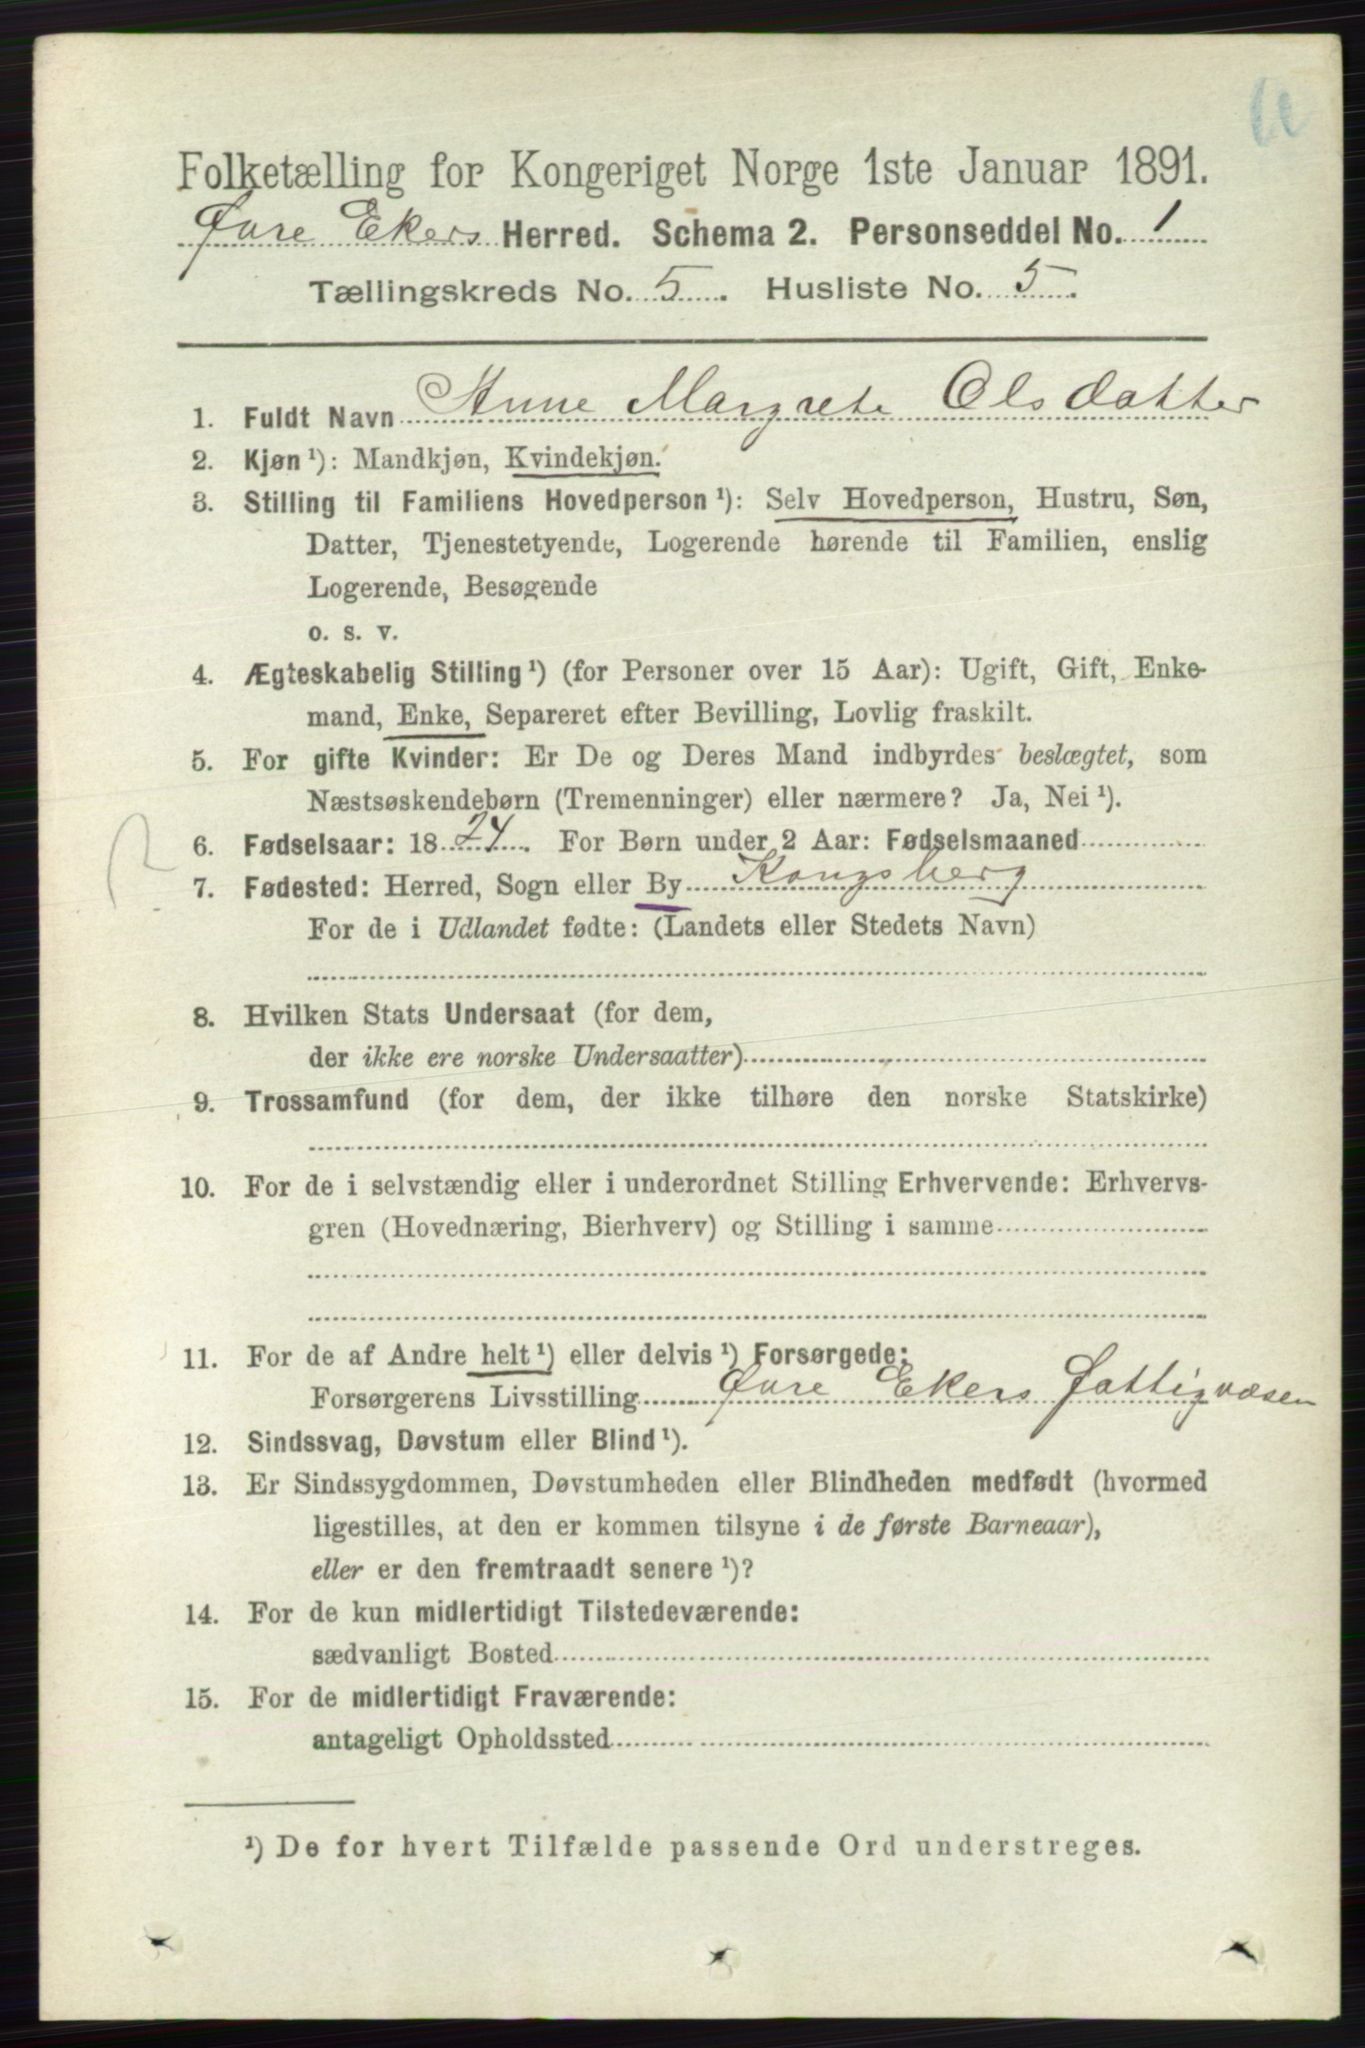 Folketælling for Kongeriget Norge 1ste Januar 1891.
Øvre Ekers Herred. Schema 2. Personseddel No. 1
Tællingskreds No. 5. Husliste No. 5.
1. Fuldt Navn Anne Margrete Olsdatter
2. Kjøn ¹): Mandkjøn, Kvindekjøn.
3. Stilling til Familiens Hovedperson ¹): Selv Hovedperson, Hustru, Søn,
Datter, Tjenestetyende, Logerende hørende til Familien, enslig
Logerende, Besøgende
o. s. v.
4. Ægteskabelig Stilling ¹) (for Personer over 15 Aar): Ugift, Gift, Enke-
mand, Enke, Separeret efter Bevilling, Lovlig fraskilt.
5. For gifte Kvinder: Er De og Deres Mand indbyrdes beslægtet, som
Næstsøskendebørn (Tremenninger) eller nærmere? Ja, Nei ¹).
6. Fødselsaar: 1824. For Børn under 2 Aar: Fødselsmaaned
7. Fødested: Herred, Sogn eller By Kongsberg
For de i Udlandet fødte: (Landets eller Stedets Navn)
8. Hvilken Stats Undersaat (for dem,
der ikke ere norske Undersaatter)
9. Trossamfund (for dem, der ikke tilhøre den norske Statskirke)
10. For de i selvstændig eller i underordnet Stilling Erhvervende: Erhvervs-
gren (Hovednæring, Bierhverv) og Stilling i samme
11. For de af Andre helt ¹) eller delvis ¹) Forsørgede:
Forsørgerens Livsstilling Øvre Ekers Fattigvæsen
12. Sindssvag, Døvstum eller Blind ¹).
13. Er Sindssygdommen, Døvstumheden eller Blindheden medfødt (hvormed
ligestilles, at den er kommen tilsyne i de første Barneaar),
eller er den fremtraadt senere ¹)?
14. For de kun midlertidigt Tilstedeværende:
sædvanligt Bosted
15. For de midlertidigt Fraværende:
antageligt Opholdssted
¹) De for hvert Tilfælde passende Ord understreges.